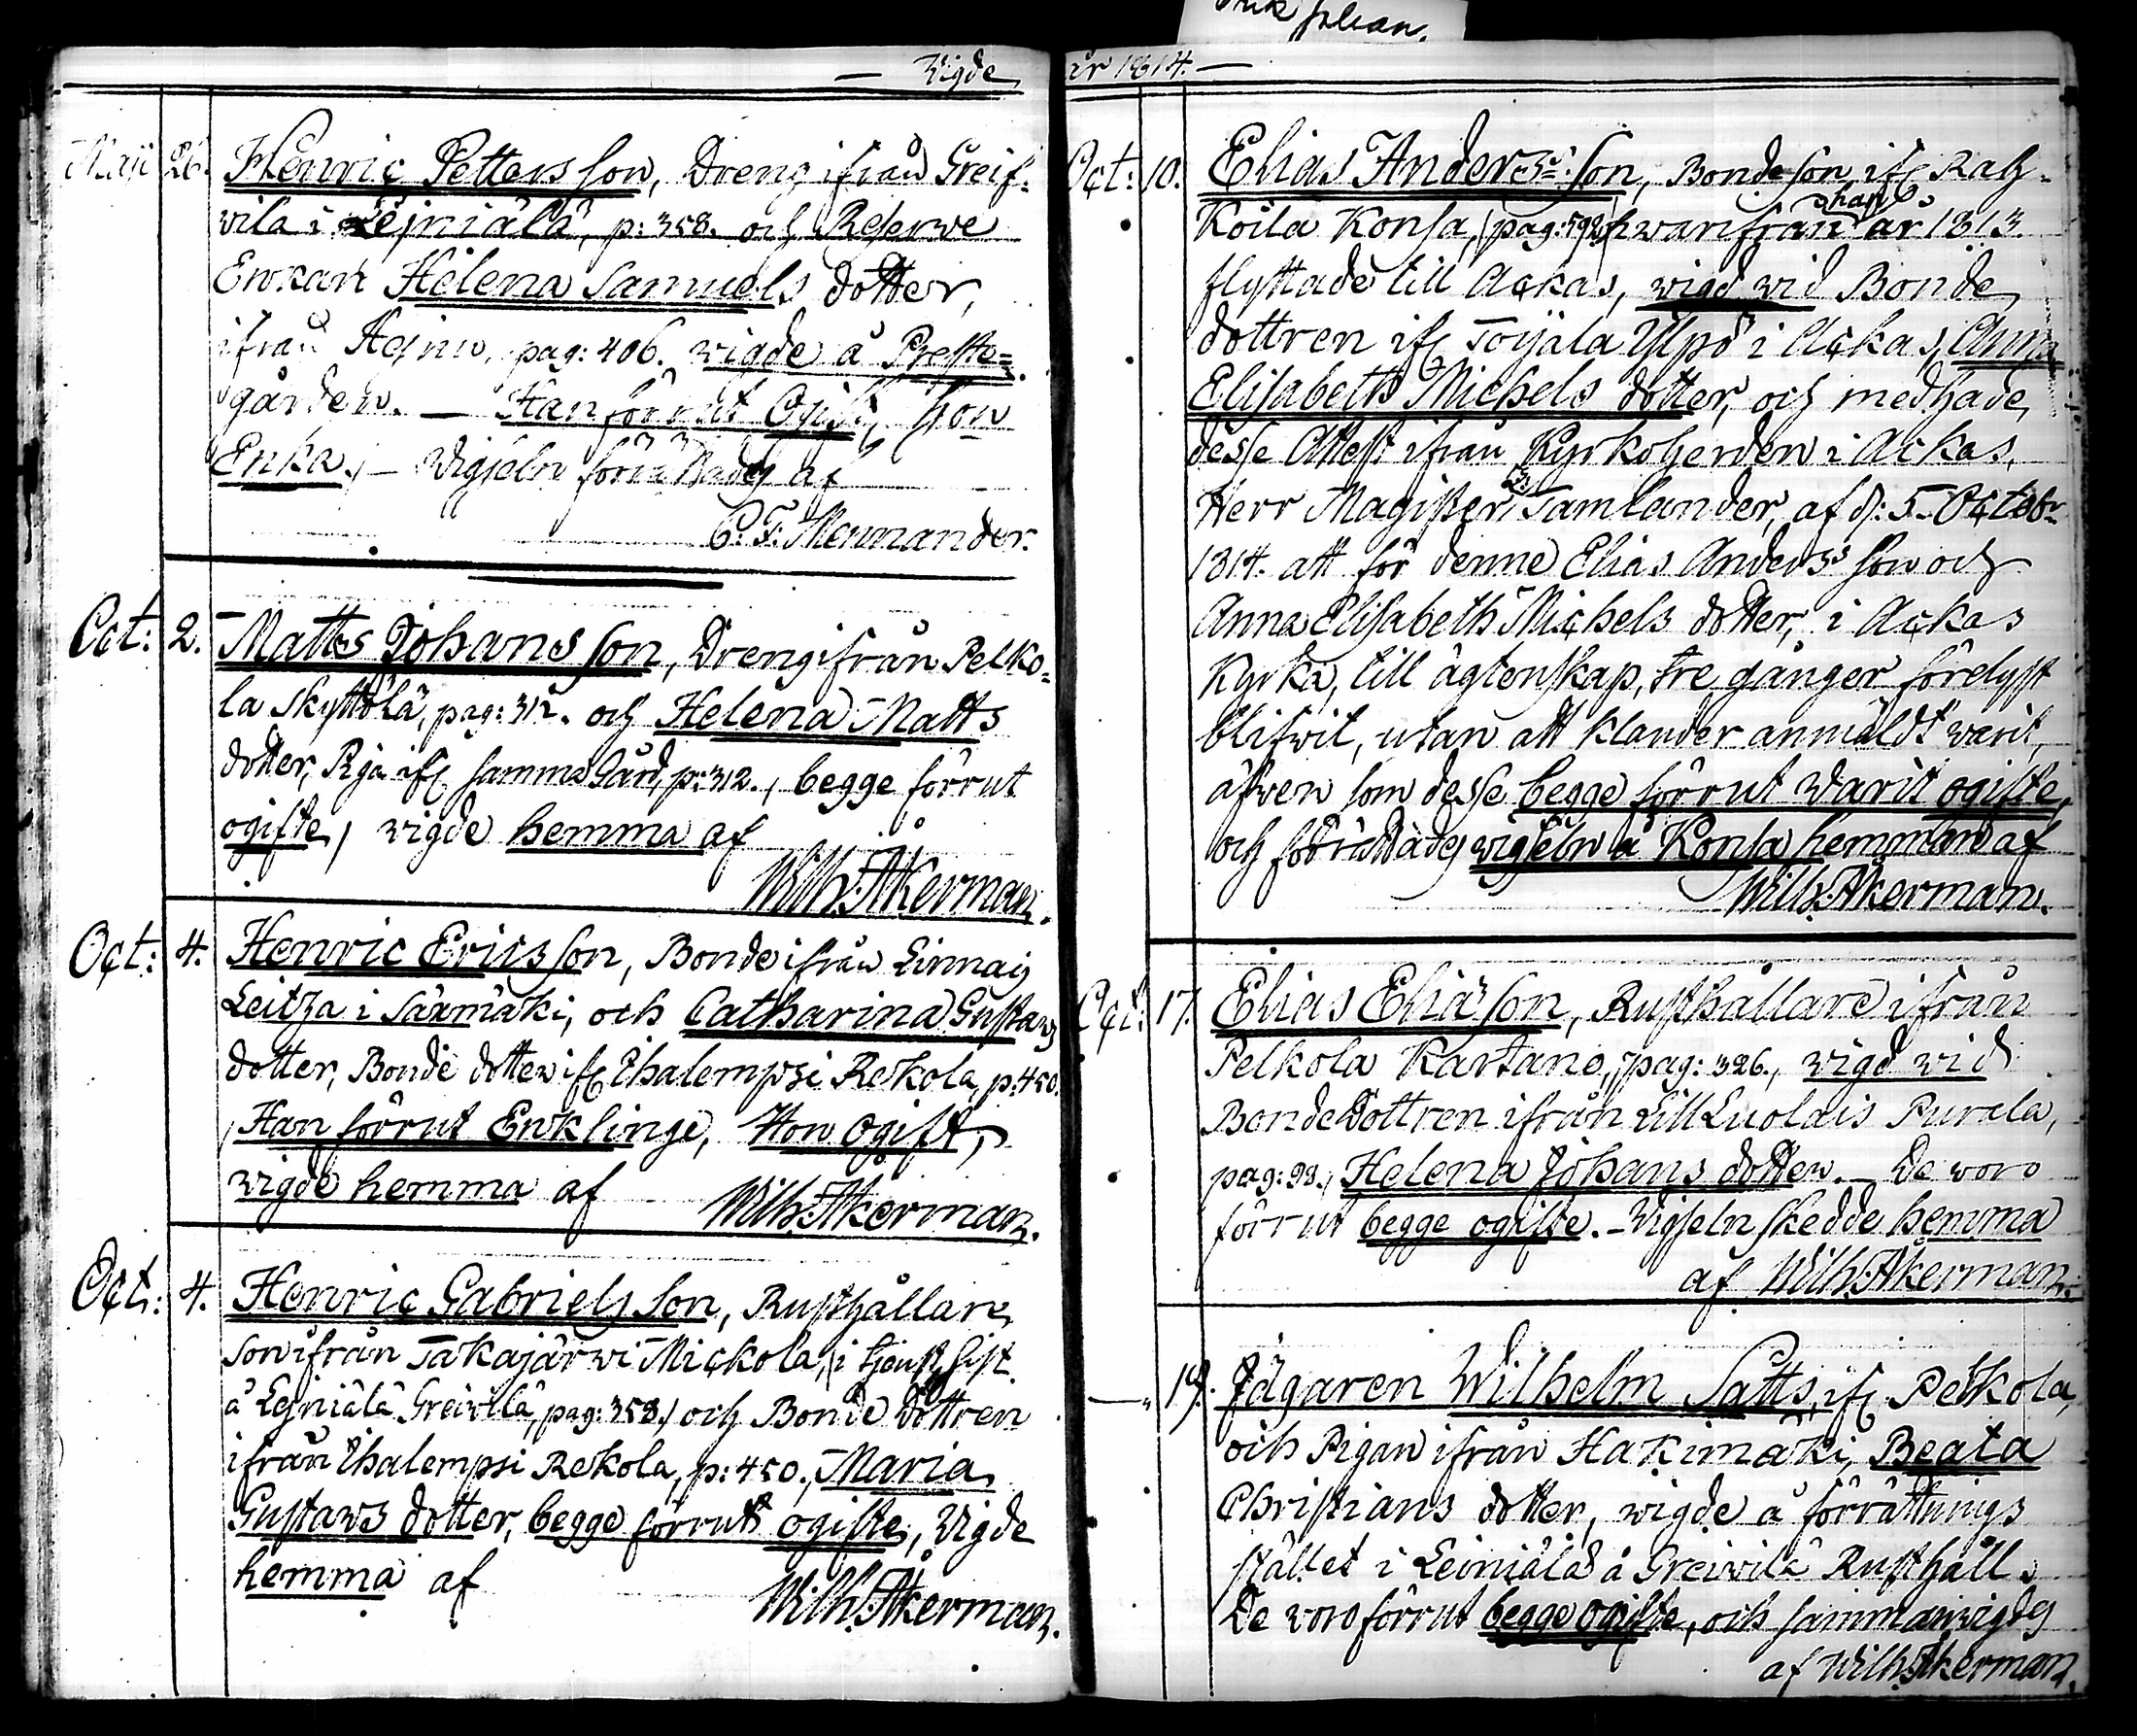 — Vigde
Maji 26. Henric Petters son, Dreng ifrån Greif-
vila i Lejniälä, p: 358. och Reserve
Enkan Helena Samuels dotter,
ifrån pag: 406. wigde å Preste-
gården. — Han förrut Ogift, hon
Enka. — Wigseln förrättades af
C. F. Mennander.
Oct: 2. Matts Johans son, Dreng ifrån Pelko-
la Skyttälä, pag: 312. och Helena Matts
dotter, Piga ifr. samma Gård, p: 312., begge förrut
ogifte, wigde hemma af
Wilh. Åkerman.
Oct: 4. Henric Erics son, Bonde ifrån Linnais
Leitza i Särmäki, och Catharina Gustavs
dotter, Bonde dotter ifr. Ihalempsi Rekola, p: 450.
Han förrut Enklinge, Hon Ogift,
wigde hemma af Wilh. Åkerman.
Oct: 4. Henric Gabriels son, Rusthållare
son ifrån Takajärwi Mickola, (i tjenst sist
å Lejniälä Greivilä, pag: 358.) och Bonde dottren
ifrån Ihalempsi Rekola, p: 450., Maria
Gustavs dotter, begge förrut ogifte, Vigde
hemma af
Wilh. Åkerman.
Johan.
år 1814. —
Oct: 10. Elias Anders son, Bonde son ifr. Kah-
Koila Konsa, (pag: 598.) hwarifrån han år 1813.
flyttade till Ackas, wigd wid Bonde
dottren ifr. Toijala Ylpö i Ackas, Anna
Elisabeth Michels dotter, och medhade
desse Attest ifrån Kyrkoherden i Ackas,
Herr Magister Tamlander, af d: 5 Octobr
1814. att för denne Elias Anders son och
Anna Elisabeth Michels dotter, i Ackas
Kyrka, till ägtenskap, tre gånger förelyst
blifwit, utan att klander anmäldt warit,
äfwen som desse begge förrut warit ogifte,
och förrättades wigseln å Konsa hemman af
Wilh. Åkerman.
Oct: 17. Elias Eliæ son, Rusthållare ifrån
Pelkola Kartano, pag: 326., wigd wid
Bonde Dottren ifrån Lill Luolais Purala,
pag: 98., Helena Johans dotter. — De woro
förrut begge ogifte. — Wigseln skedde hemma
af Wilh. Åkerman.
—"— 19. Jägaren Wilhelm Satts, ifr. Pelkola,
och Pigan ifrån Hakimäki, Beata
Christians dotter, wigde å förrättnings
stället i Leiniälä å Greivilä Rusthåll.
De woro förrut begge ogifte, och sammanwigdes
af Wilh. Åkerman.